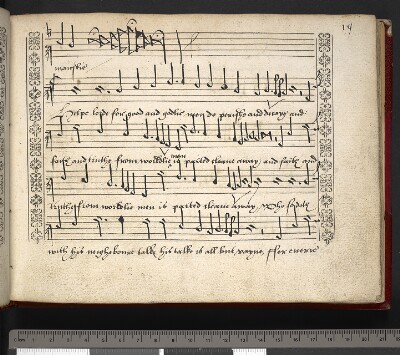 maiestie
Helpe lord for good and godlie men do perishe and decay and
faith and truthe from worldlie men is parted cleane away, and faith and
truthe from worldlie men is parted cleane away, Who so doth
with his neighbour talke his talke is all but vayne, ffor everie